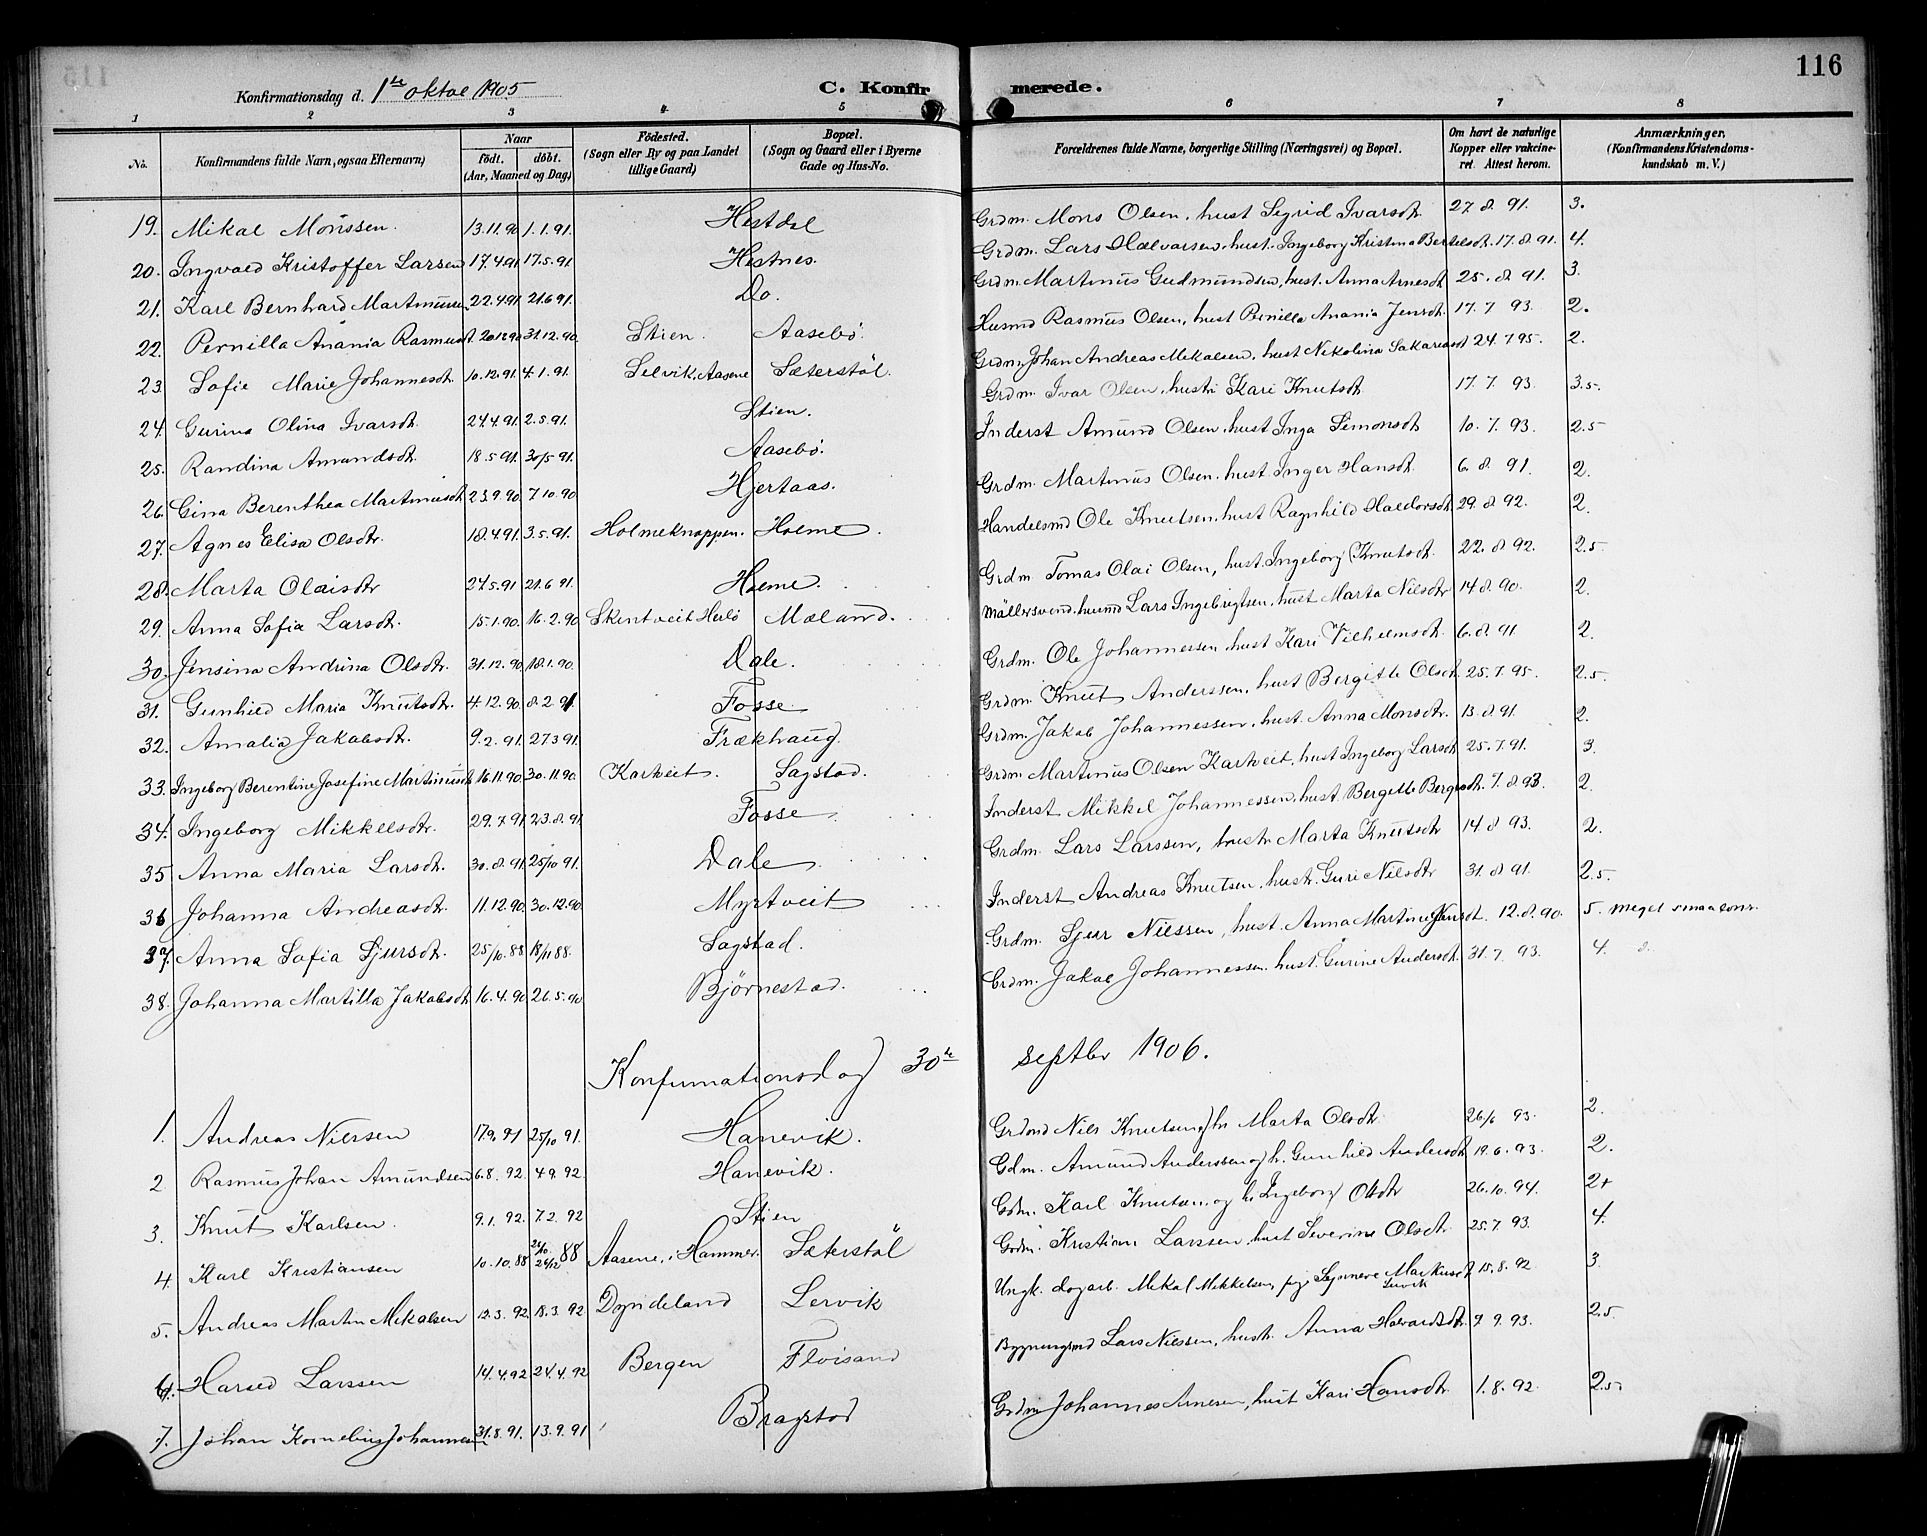 116
Konfirmationsdag d. 1ste oktbr 1905 C. Konfirmerede.
1 2 3 4 5 6 7 8
No. Konfirmandens fulde Navn, ogsaa Efternavn) Naar født. døbt. (Aar, Maaned og Dag) Fødested. (Sogn eller By og paa Landet tillige Gaard) Bopæl. (Sogn og Gaard eller i Byerne Gade og Hus-No. Forældrenes fulde Navne, borgerlige Stilling (Næringsvei) og Bopæl. Om havt de naturlige Kopper eller vakcineret. Attest herom. Anmærkninger, (Konfirmandens Kristendomskundskab m. V.)
19. Mikal Monssen. 13.11.90 1.1.91. Hestdal Grdm. Mons Olsen, hust Sigrid Ivarsdtr 27.8.91. 3.
20. Ingvald Kristoffer Larsen 17.4.91 17.5.91 Hestnes. Grdm. Lars Halvorsen, hust. Ingeborg Kristina Bertelsdt. 17.8.91. 4.
21. Karl Bernhard Martinussen 22.4.91 21.6.91. Do. Grdm. Martinus Gudmundsen, hust. Anna Arnesdt 25.8.91. 3.
22. Pernilla Anania Rasmusdt. 20.12.90 31.12.90 Stien. Aasebø. Husmd Rasmus Olsen, hust Pernilla Anania Jensdt. 17.7 93. 2.
23. Sofie Marie Johannesdt. 10.12.91 4.1.91. Selvik, Aasene Sæterstøl. Grdm. Johan Andreas Mikalsen, hust Nikolina Sakariasdt 24.7 95. 2.
24. Gurina Olina Ivarsdt. 24.4.91. 2.5.91. Stien. Grdm. Ivar Olsen, hustr Kari Knutsdt 17.7.93. 3.5.
25. Randina Amundsdt. 18.5.91. 30/5 91. Aasebø. Inderst Amund Olsen, hust Inga Simonsdt 10.7.93. 2.5
26. Gina Berenthea Martinusdt 23.9.90. 7.10.90 Hjertaas. Grdm. Martinus Olsen, hust Inger Hansdt. 6.8.91. 2.
27. Agnes Elisa Olsdtr. 18.4.91. 3.5.91. Holmeknappen. Holme. Handelsmd Ole Knutsen, hust Ragnhild Haldorsdt. 29.8.92. 2.
28. Marta Olaisdtr 24.5.91 21.6.91. Holme. Grdm. Tomas Olai Olsen, hust. Ingeborg Knutsdt. 22.8.92. 2.5.
29. Anna Sofia Larsdt. 15.1.90. 16.2.90 Skintveit Herlø Mæland. Møllersvend, husmd Lars Ingebrigtsen, hust Marta Nilsdtr 14.8.90. 2.
30. Jensina Andrina Olsdtr. 31.12.90 18.1.90. Dale. Grdm. Ole Johannessen hust Kari Vilhelmsdt. 6.8.91 2.
31. Gunhild Maria Knutsdtr. 4.12.90. 8.2.91. Fosse. Grdm. Knut Anderssen, hust Bergitte Olsdt. 25.7.95. 2.5.
32. Amalia Jakobsdtr. 9.2.91. 27.3.91. Frækhaug. Grdm. Jakob Johannessen, hust. Anna Monsdtr. 13.8.91. 2.
33. Ingeborg Berentine Josefine Martinusdt 16.11.90. 30.11.90. Kartveit. Sagstad. Grdm Martinus Olsen Kartveit, hust Ingeborg Larsdt 25.7.91. 3.
34. Ingeborg Mikkelsdtr. 29.7.91. 23.8.91 Fosse. Inderst Mikkel Johannessen, hust. Bergitte Bergesdt. 7.8.93. 2.
35 Anna Maria Larsdt. 30.8.91 25/10 91. Dale. Grdm. Lars Larssen, hustr Marta Knutsdtr 14.8 93. 2.
36 Johanna Andreasdtr. 11.12.90. 30.12.90. Myrtveit Inderst Andreas Knutsen, hustr. Guri Nilsdtr 31.8 91. 2.5.
37. Anna Sofia Sjursdt. 25/10.88 18/11 88. Sagstad. Grdm. Sjur Nilssen, hust. Anna Martine Jensdt. 12.8.90. 5. meget smaa evner.
38. Johanna Martilla Jakobsdt 16.4.90 26.5.90 Bjørnestad. Grdm. Jakob Johannessen. hust. Gurine Andersdt. 31.7.93. 4.
Konfirmationsdag 30te septbr 1906.
1. Andreas Nilssen 17.9.91 25/10 91. Hanevik. Grdmd Nils Knutsen og h. Marta Olsdtr. 26/6 93. 2.
2 Rasmus Johan Amundsen 6.8.92. 4.9.92. Hanevik. Gdm. Amund Anderssen og h. Gunhild Andersdt 19.6.93. 2.
3. Knut Karlsen. 9.1.92. 7.2.92 Stien Gdm. Karl Knutsen og h. Ingeborg Olsdtr 26.10.94. 2+
4. Karl Kristiansen 10.10.88 21/10 26/12 88 Aasene, i Hammer. Sæterstøl Grdm. Kristian Larssen, hust Severine Olsdtr 25.7 93. 4.
5. Andreas Martin Mikalsen 12.3.92. 18.3.92 Dyndeland Lervik Ungk. dagarb. Mikal Mikkelsen, pige Synneve Markusdt Lervik 15.8.92 3.
6. Harald Larssen 14.4.92 24.4.92 Bergen Floisand Bygningsmd Lars Nilssen, hustr. Anna Halvardsdtr. 9.9.93. 2.5
7. Johan Kornelius Johannessen 31.8.91. 13.9.91 Bragstad Grdm Johannes Arnesen, hust Kari Hansdtr. 1.8.92. 2.5